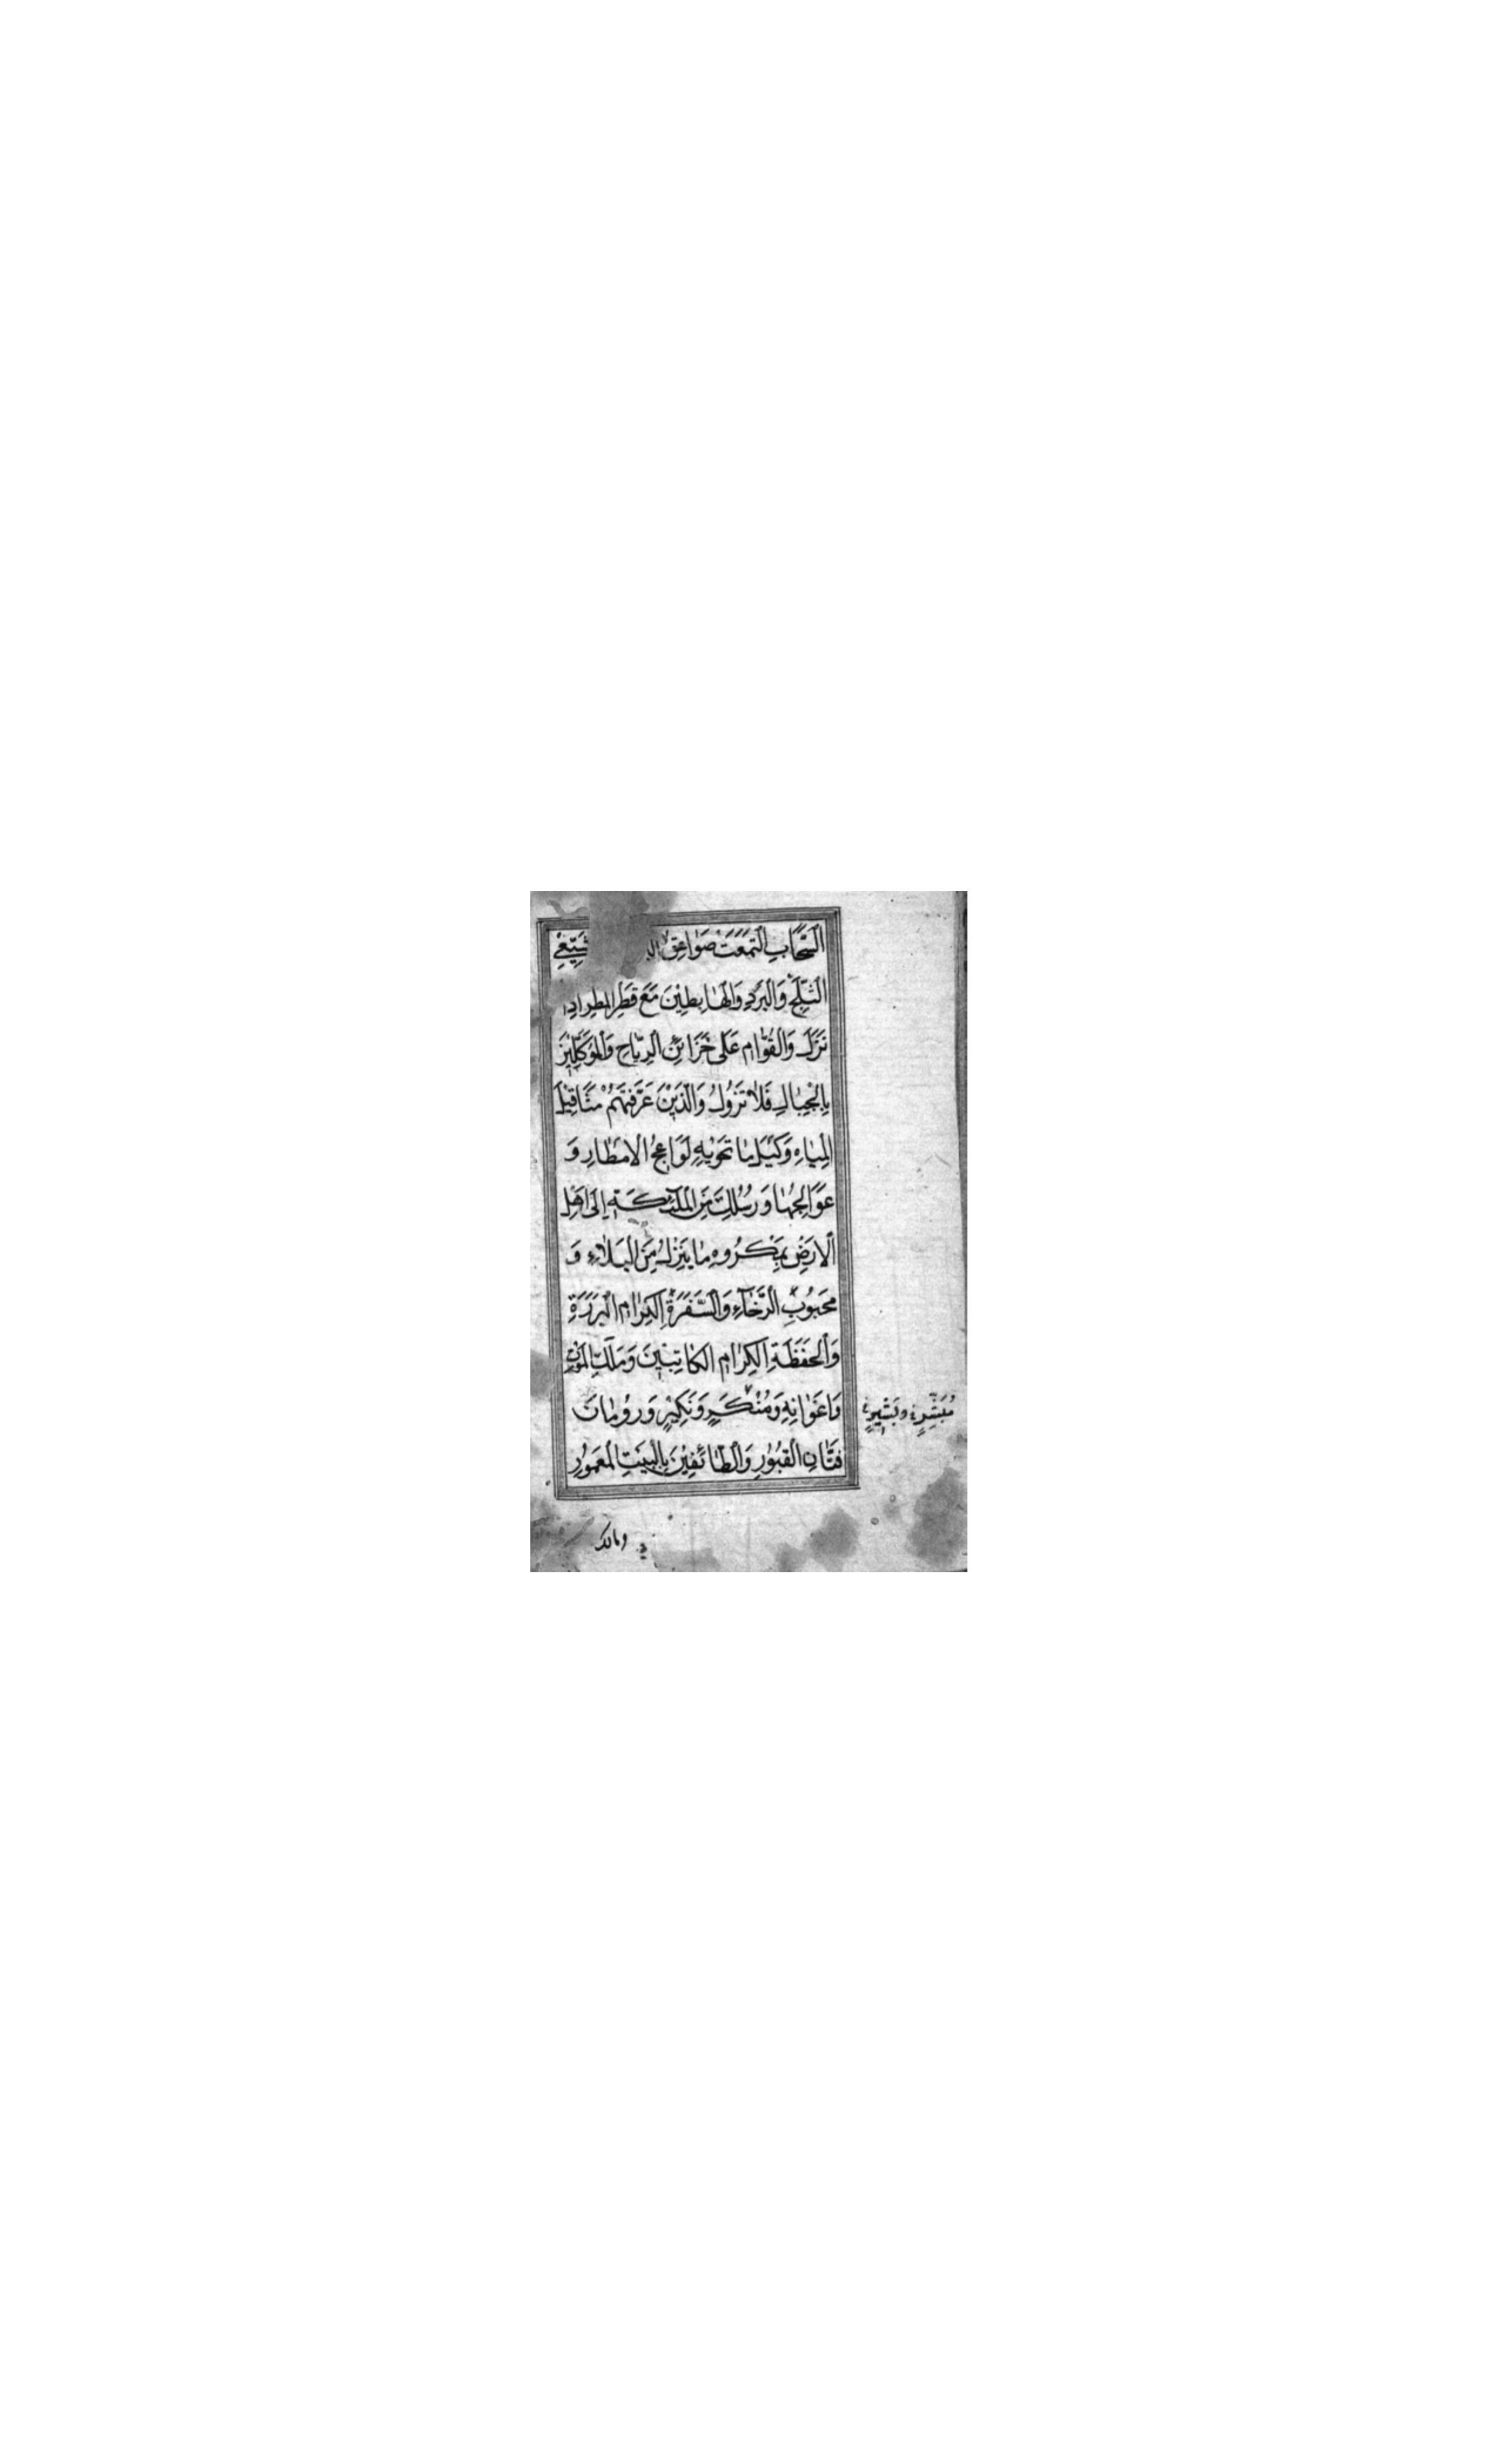 السَّحَابِ الْتَمَعَتْ صَوَاعِقُ مُشَيِّعِي
الثَّلْجِ وَالْبَرَدِ وَالْهَابِطِيْنَ مَعَ قَطْرِ الْمَطَرِ اِذَا
نَزَلَ وَالْقُوَّامِ عَلَى خَزَائِنِ الرِّيَاحِ وَالْمُوَكَّلِيْنَ
بِالْجِبَالِ فَلَا تَزُولُ وَالَّذِيْنَ عَرَّفْتَهُمْ مَثَاقِيْلَ
الْمِيَاهِ وَكَيْلَ مَا تَحْوِيْهِ لَوَاعِجُ الْاَمْطَارِ وَ
عَوَالِجُهَا وَرُسُلِكَ مِنَ الْمَلٰٓئِكَةِ اِلَى اَهْلِ
الْاَرْضِ بِمَكْرُوهِ مَا يَنْزِلُ مِنَ الْبَلَاءِ وَ
مَحْبُوبِ الرَّخَآءِ وَالسَّفَرَةِ الْكِرَامِ الْبَرَرَةِ
وَالْحَفَظَةِ الْكِرَامِ الْكَاتِبِيْنَ وَمَلَكِ الْمَوْتِ
وَاَعْوَانِهِ وَمُنْكَرٍ وَنَكِيْرٍ وَرُومَانَ
مُبَشِّرٍ وبَشِيرٍ
فَتَّانِ الْقُبُورِ وَالطَّائِفِيْنَ بِالْبَيْتِ الْمَعْمُورِ
ومالك